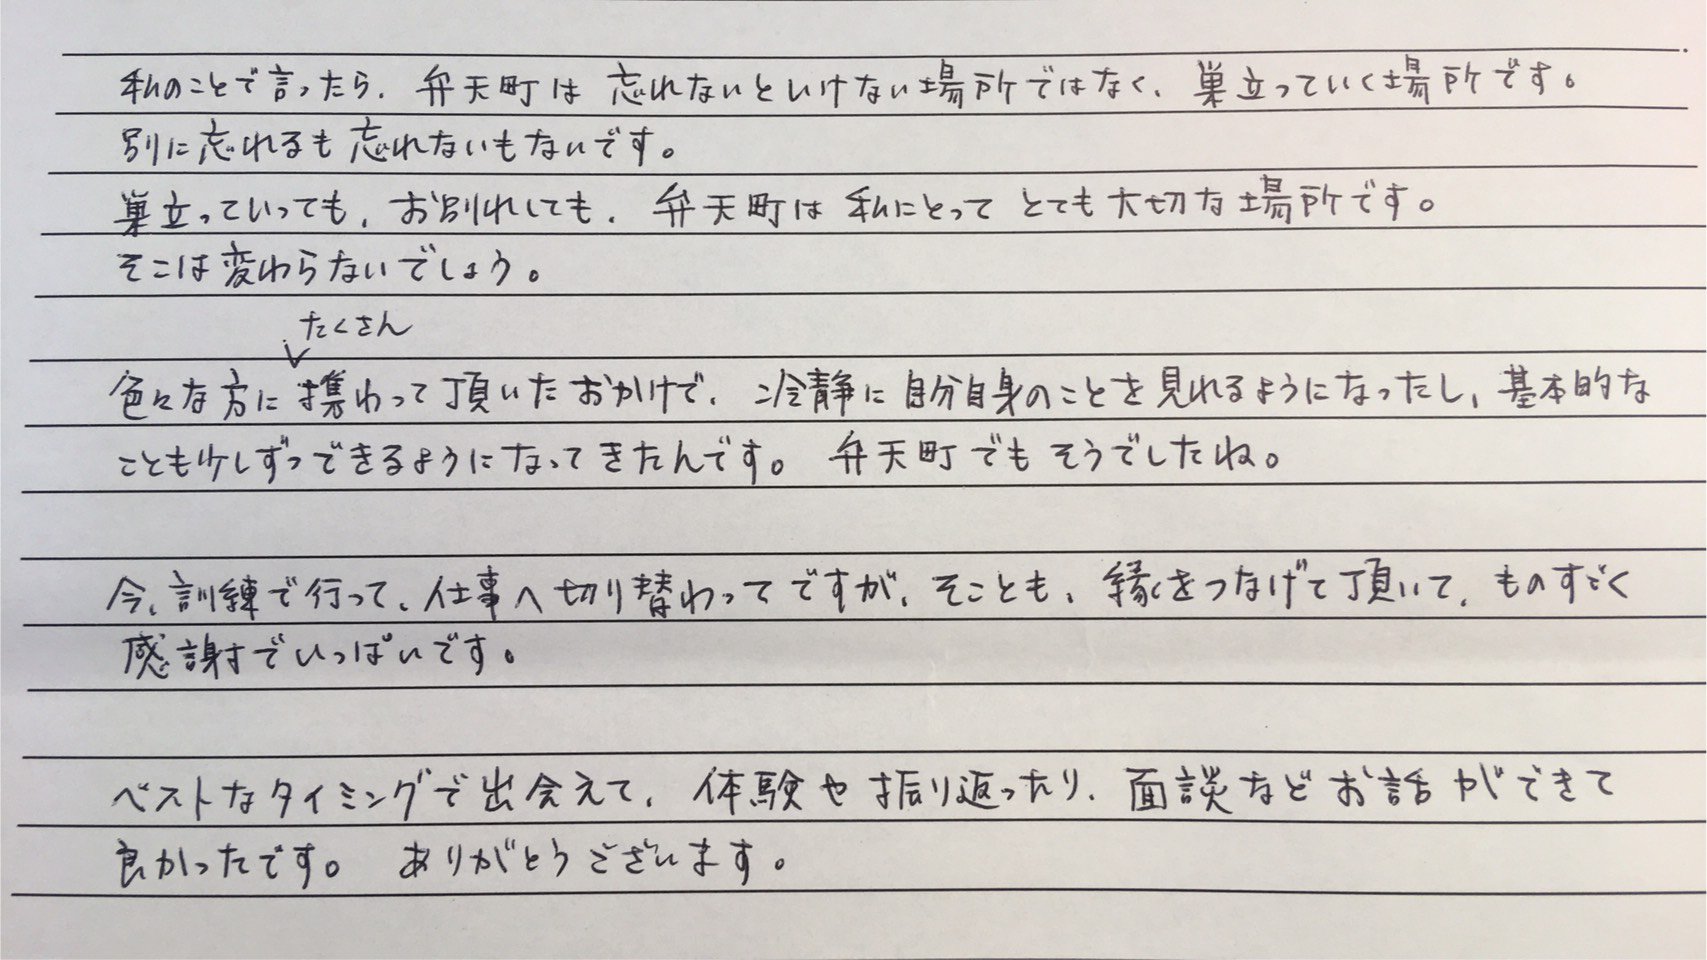 私のことで言ったら、弁天町は忘れないといけない場所ではなく、巣立っていく場所です。
別に忘れるも忘れないもないです。
巣立っていっても、お別れしても、弁天町は私にとってとても大切な場所です。
そこは変わらないでしょう。
たくさん
色々な方に携わって頂いたおかげで、冷静に自分自身のことを見れるようになったし、基本的な
ことも少しずつできるようになってきたんです。 弁天町でもそうでしたね。
今、訓練で行って、仕事へ切り替わってですが、そことも、縁をつなげて頂いて、ものすごく
感謝でいっぱいです。
ベストなタイミングで出会えて、体験や振り返ったり、面談などお話ができて
良かったです。 ありがとうございます。